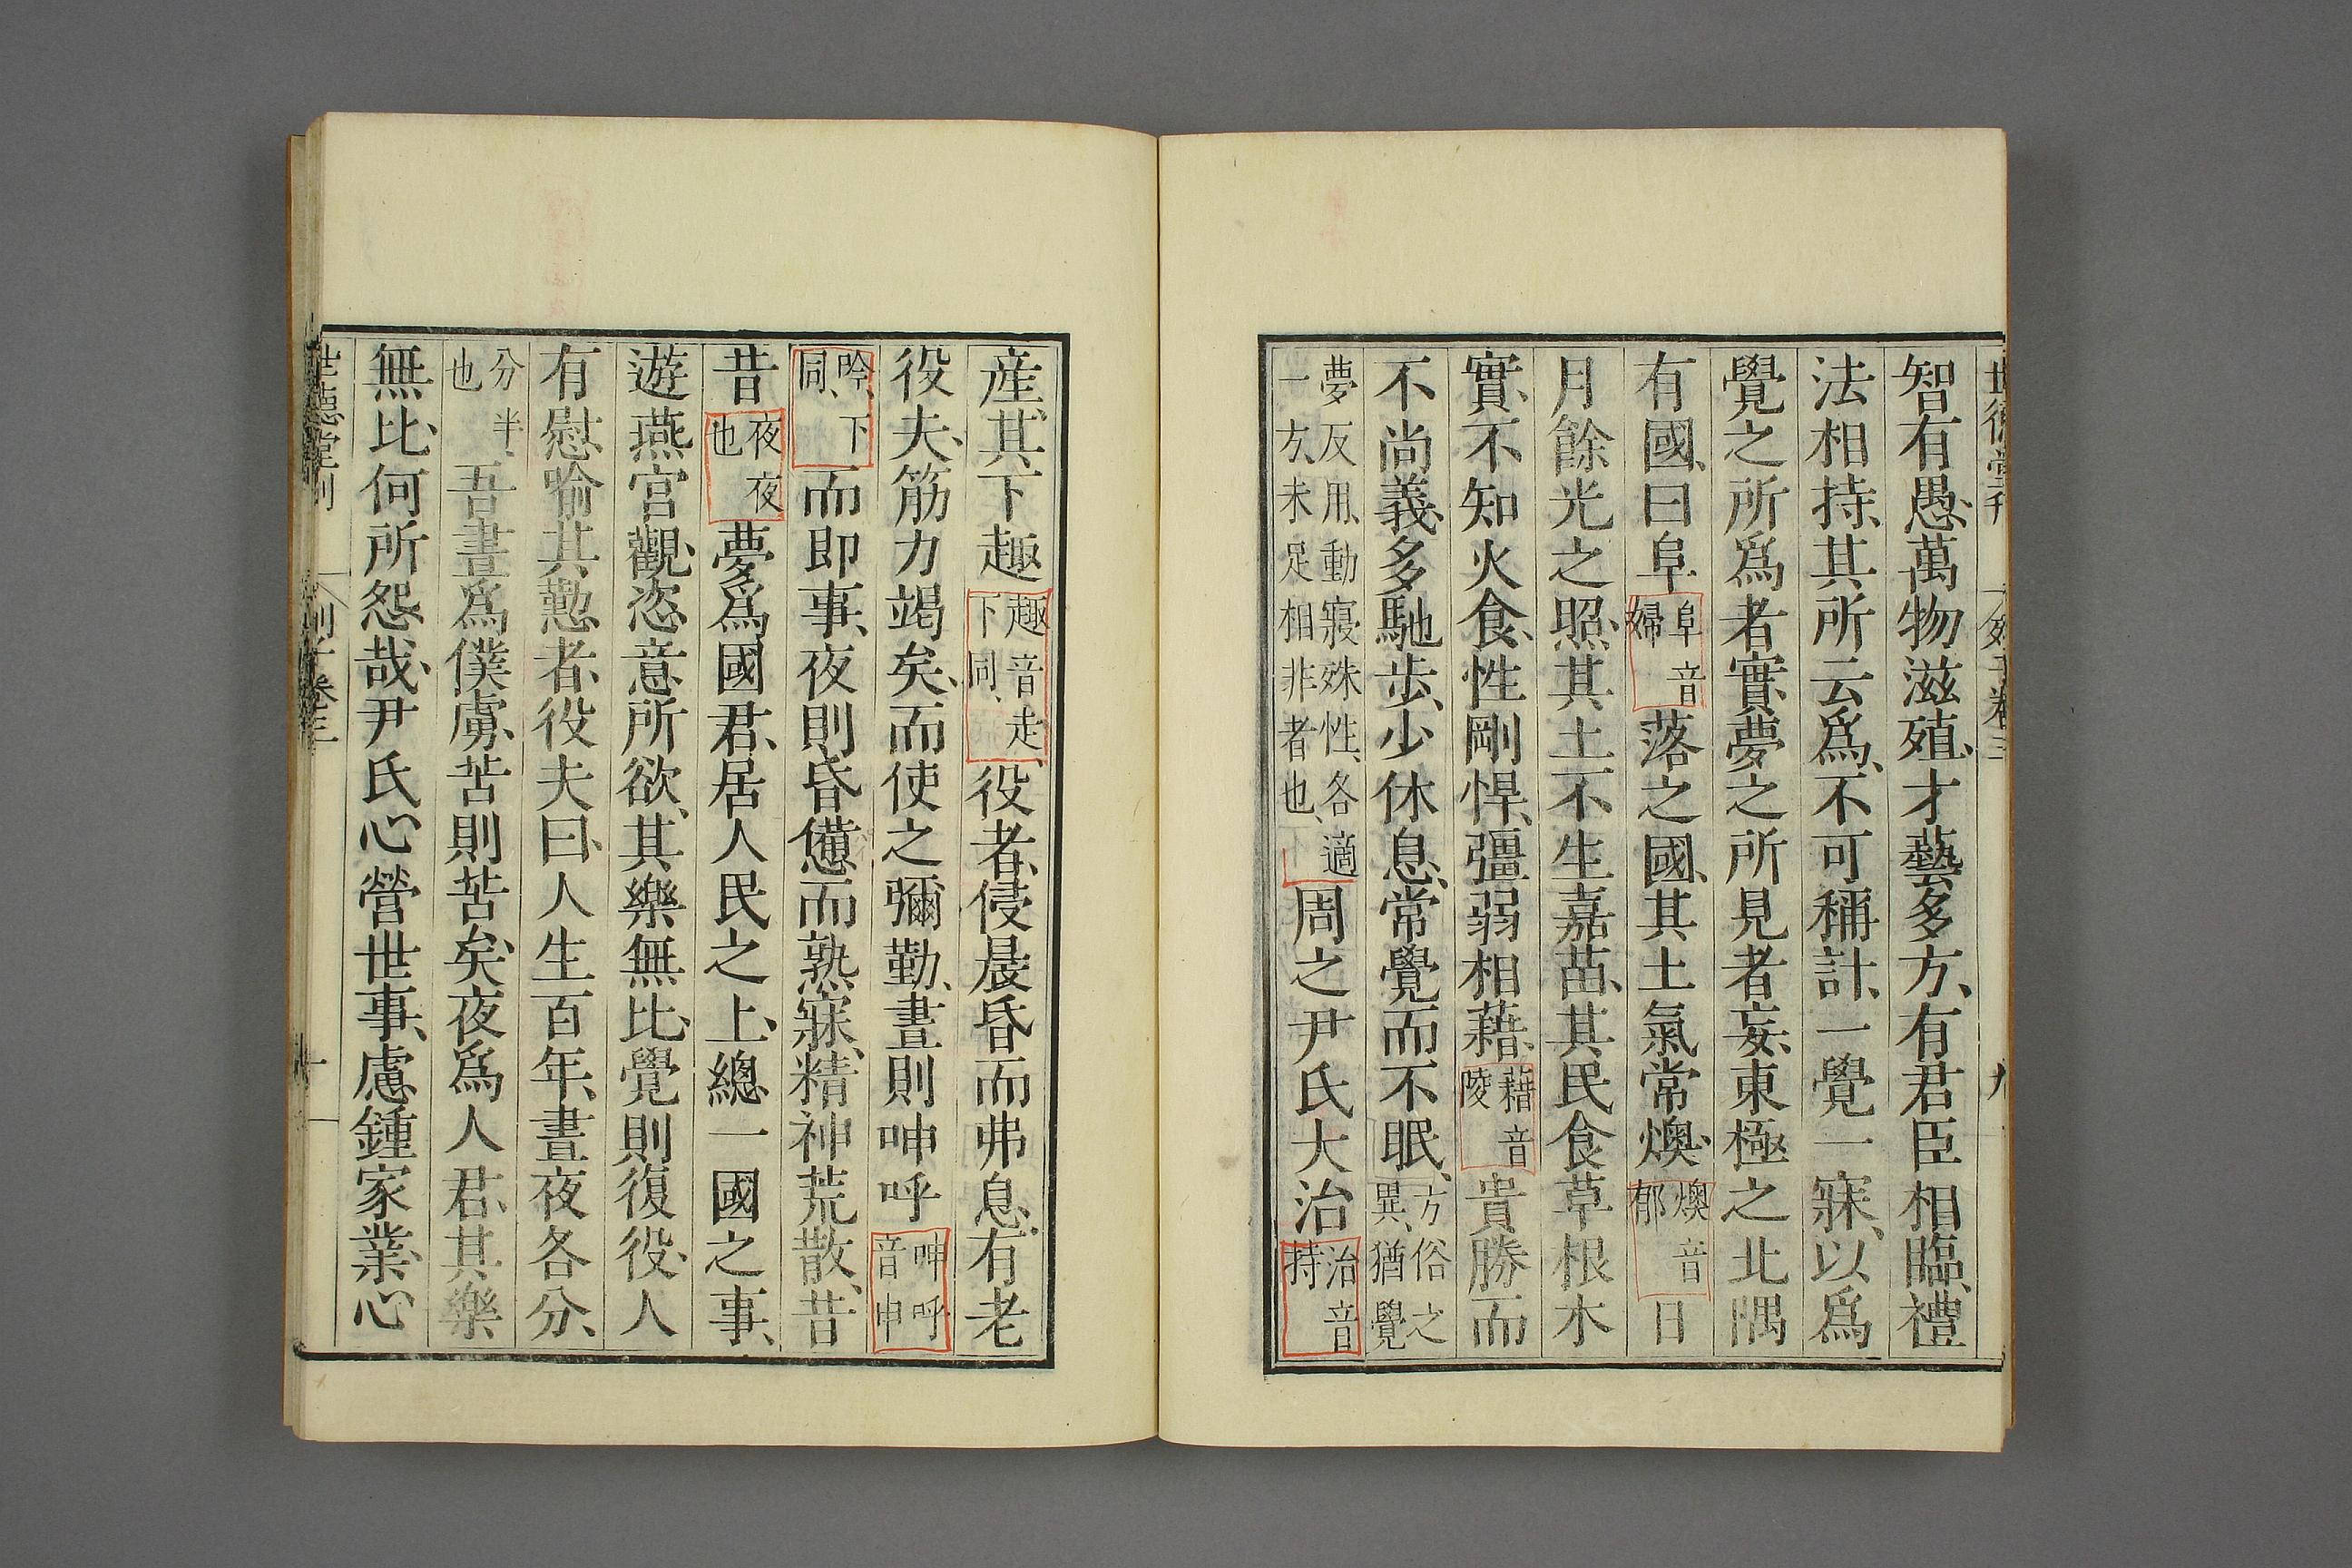 世德堂刊 列子卷三 九
智有愚、萬物滋殖、才藝多方、有君臣相臨、禮
法相持、其所云爲、不可稱計、一覺一寐、以爲
覺之所爲者實、夢之所見者妄、東極之北隅
有國、曰阜阜音婦落之國、其土氣常燠、燠音郁日
月餘光之照、其土不生嘉苗、其民食草根木
實、不知火食、性剛悍、彊弱相藉、藉音陵貴勝而
不尚義、多馳步、少休息、常覺而不眠、方俗之異、猶覺
夢反用、動寢殊性、各適一方、未足相非者也、周之尹氏大治治音持
産、其下趣趣音走、下同、役者、侵晨昏而弗息、有老
役夫、筋力竭矣、而使之彌勤、晝則呻呼呻呼音申
吟、下同、而即事、夜則昏憊而熟寐、精神荒散、昔
昔夜夜也夢爲國君、居人民之上、總一國之事、
遊燕宮觀、恣意所欲、其樂無比、覺則復役、人
有慰喻其懃者、役夫曰、人生百年、晝夜各分、
分半也、吾晝爲僕虜、苦則苦矣、夜爲人君、其樂
無比、何所怨哉、尹氏心營世事、慮鍾家業、心
世德堂刊 列子卷三 十